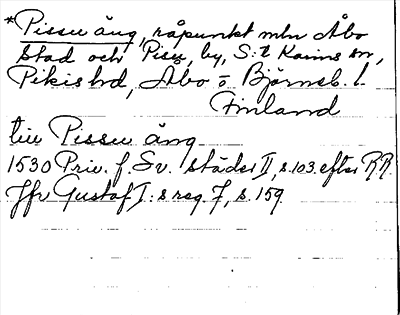 *Pissu äng, råpunkt mln Åbo
stad och Pisz, by, S:t Karins sn,
Pikis hd, Åbo o Björneb. l.
Finland
tiu Pissu äng
1530 Priv. f. Sv. städer II, s. 103. efter R.R.
Jfr Gustaf I:s reg. 7, s. 159.